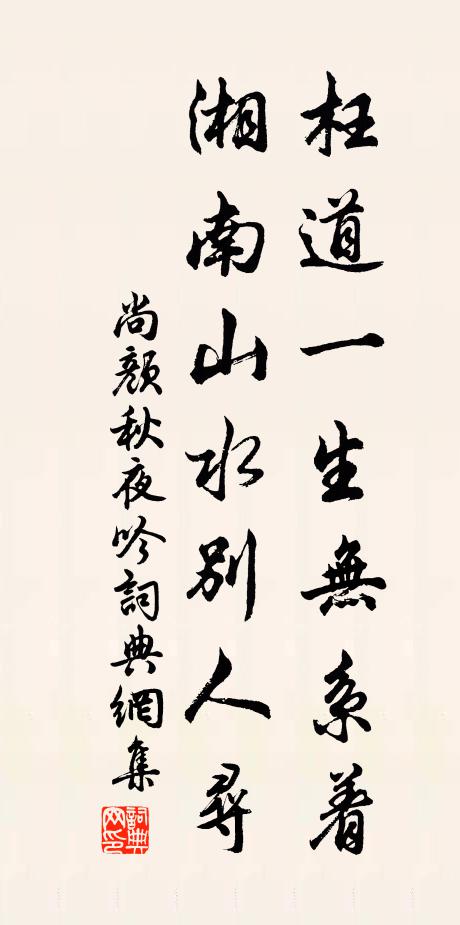 枉道一生無系着
湘南山水別人尋
尚顏秋夜吟詞典網集
詞典網印